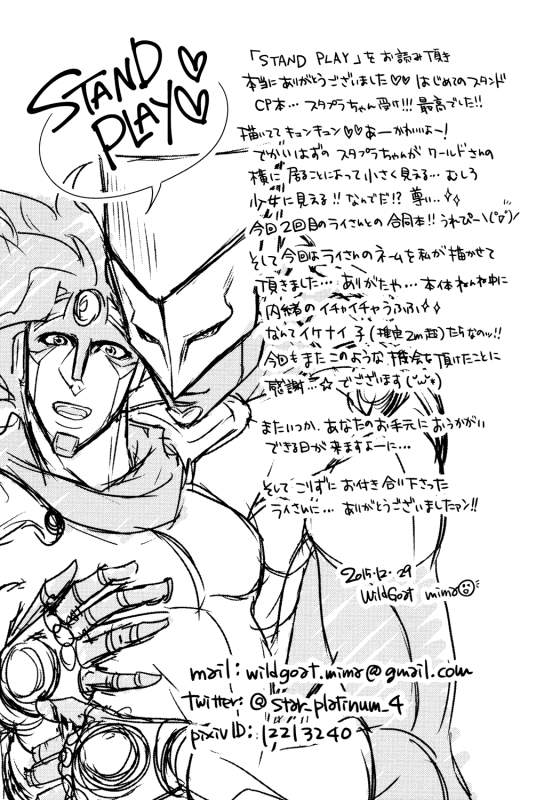 STAND
PLAY♡♡
「STAND PLAY」をお読み頂き
本当にありがとうございました♡♡ はじめてのスタンド
CP本… スタプラちゃん受け!!! 最高でした!!
描いてて キュンキュン♡♡ あーかわいよ~!
でかいはずの スタプラちゃんが ワールドさんの
横に 居ることによって小さく見える… むしろ
少女に見える!! なんでだ!? 尊い…✧✧
今回2回目のライさんとの 合同本!! うれぴー\(^o^)/
そして 今回はライさんの ネームを私が 描かせて
頂きました… ありがたや… 本体 ねんね中に
内緒の イチャイチャうふふ✧✧
なんて イケナイ 子 (推定2m超) たちなのッ!!
今回もまた このような 機会を頂けたことに
感謝…☆ でございます (^ω^)
またいつか、あなたのお手元に おうかがい
できる日が 来ますよーに…
そして こりずに お付き合い下さった
ライさんに… ありがとうございましたァン!!
2015.12.29
WildGoat mima
mail: wildgoat.mima@gmail.com
twitter: @star_platinum_4
pixiv ID: 12213240